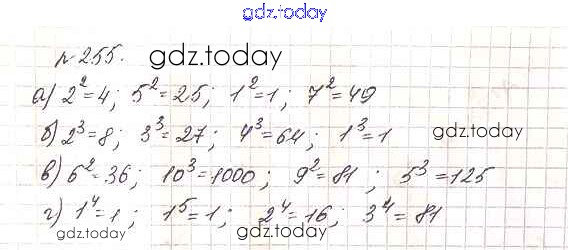 gdz.today
№ 255. gdz.today
а) 2² = 4; 5² = 25; 1² = 1; 7² = 49
б) 2³ = 8; 3³ = 27; 4³ = 64; 1³ = 1 gdz.today
в) 6² = 36; 10³ = 1000; 9² = 81; 5³ = 125
г) 1⁴ = 1; 1⁵ = 1; 2⁴ = 16; 3⁴ = 81
gdz.today gdz.today